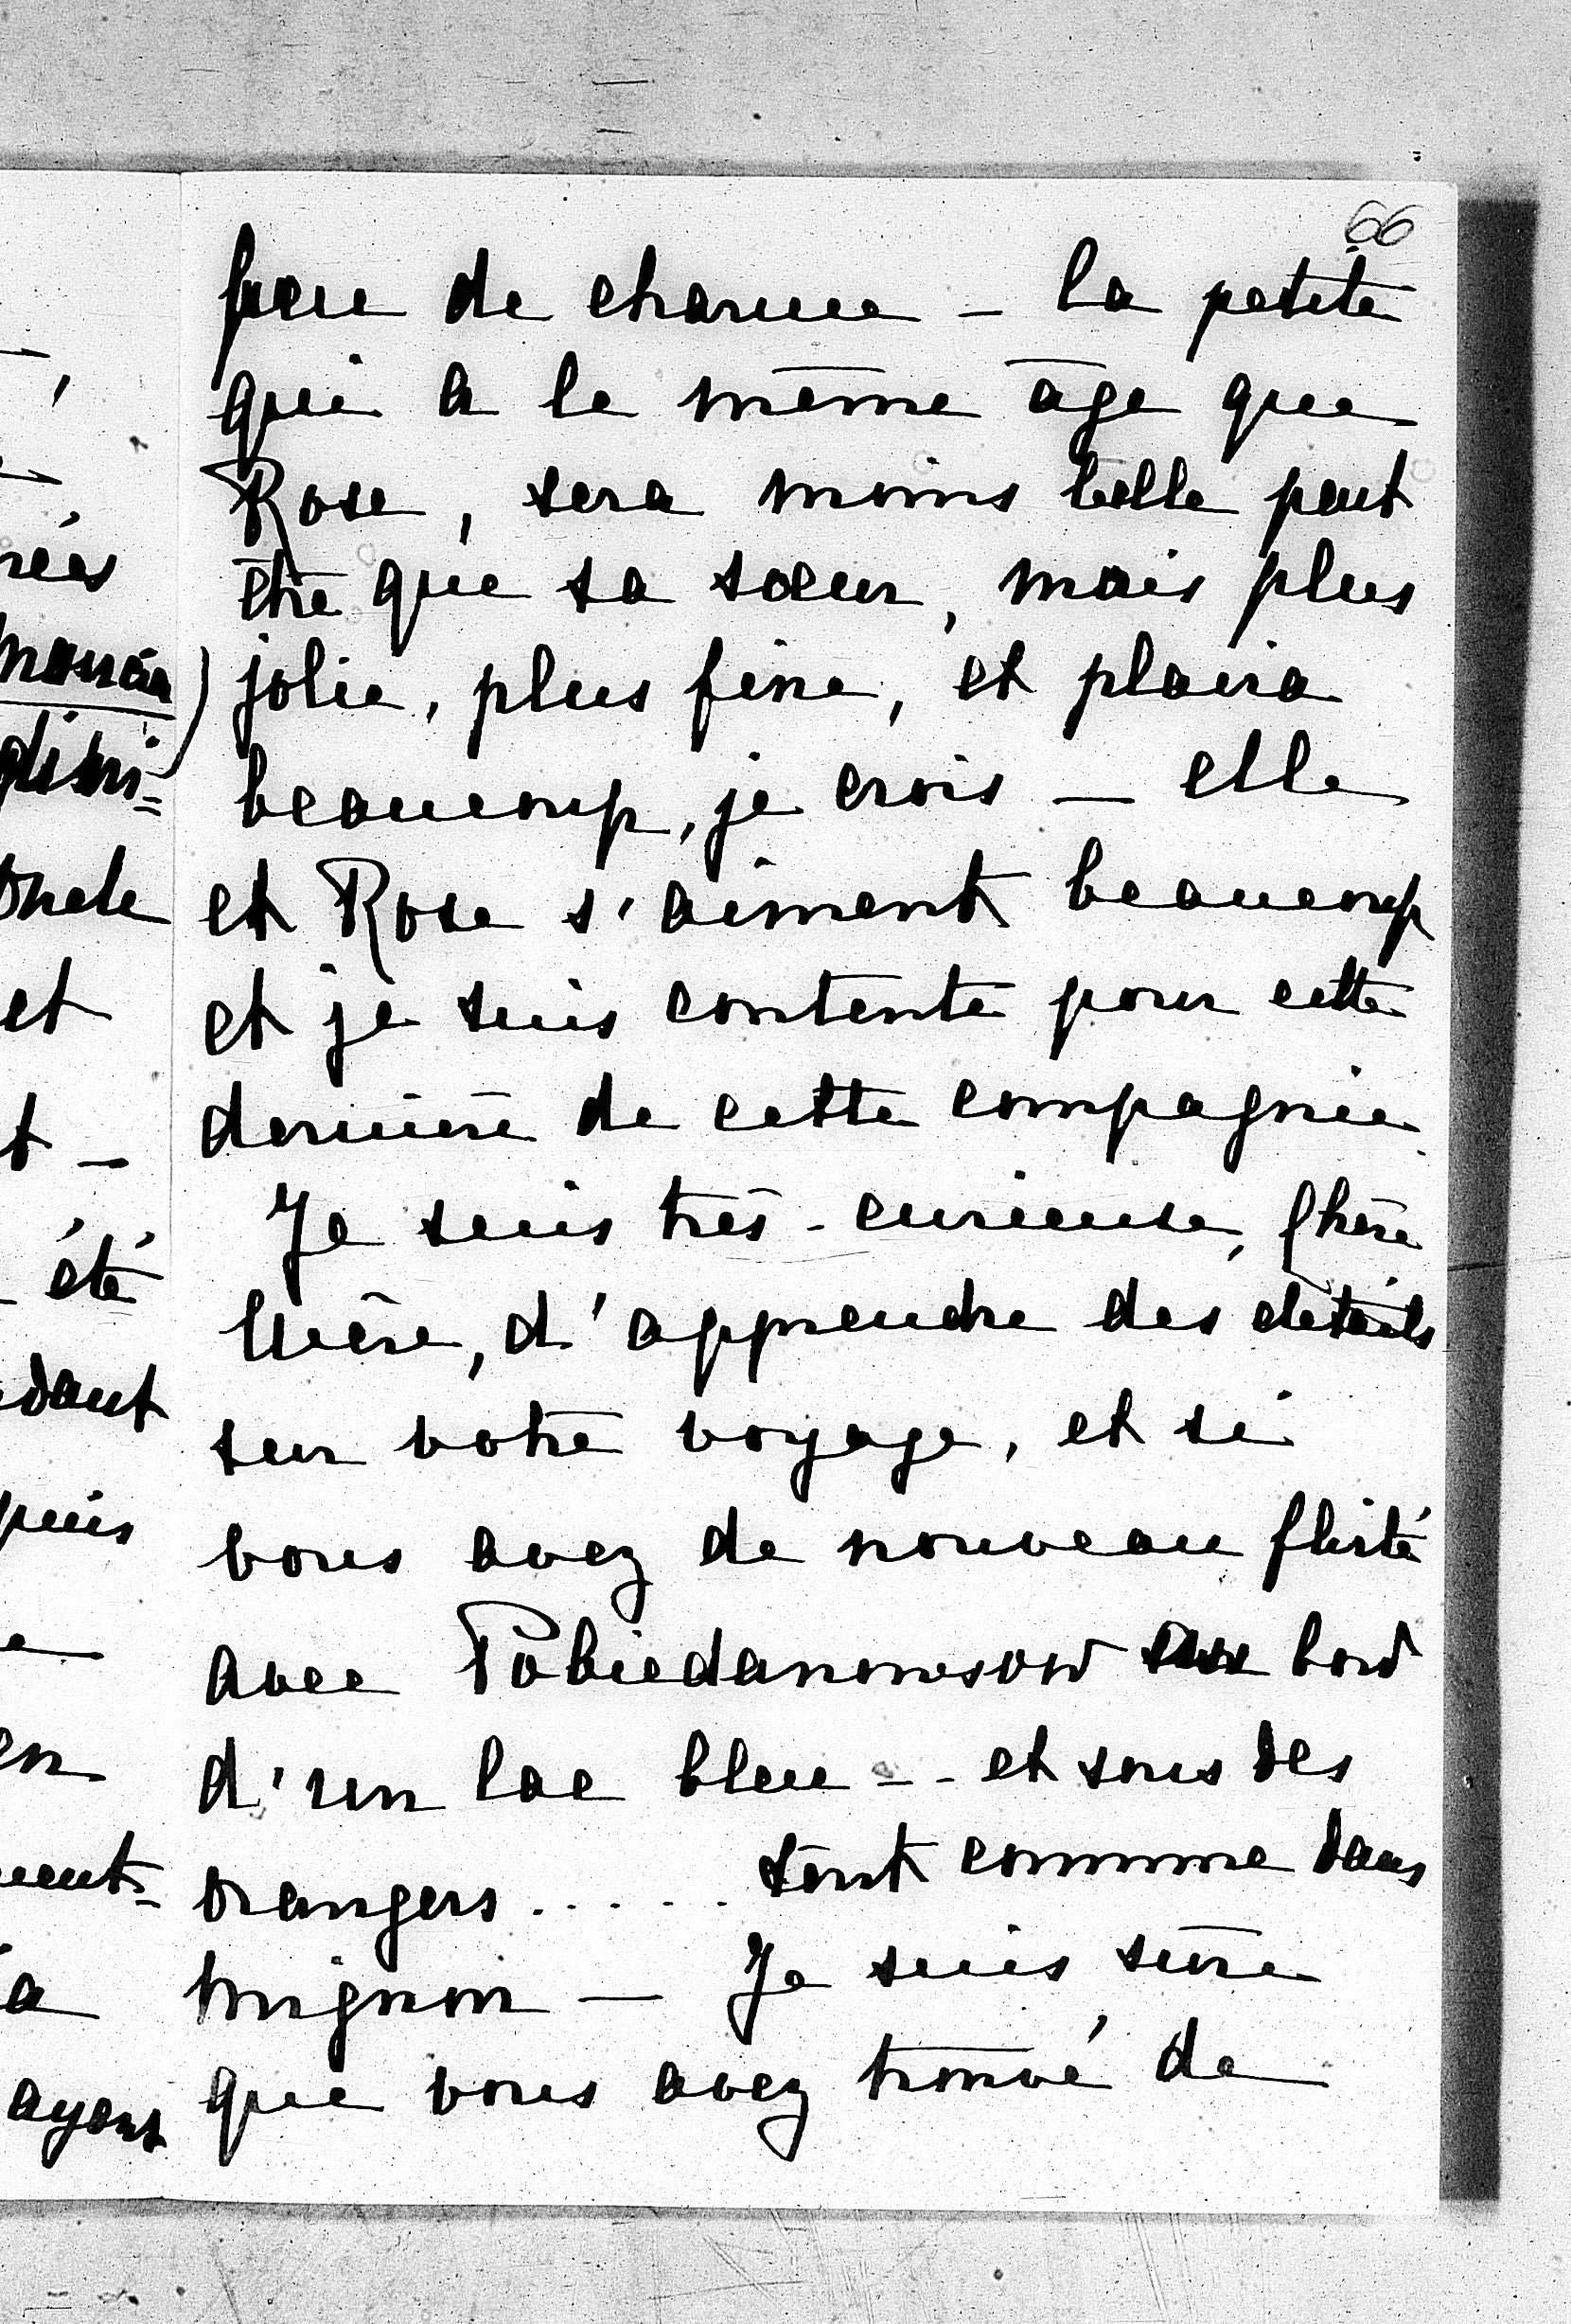 66
peu de charme - la petite
qui a le même âge que
Rose, sera moins belle peut
être que sa soeur, mais plus
jolie, plus fine, et plaira
beaucoup, je crois - elle
et Rose s'aiment beaucoup
et je suis contente pour cette
dernière de cette compagnie.
Je suis très curieuse, chère
Mère, d'apprendre des détails
sur votre voyage, et si
vous avez de nouveau flirté
avec Pobiedanowsow bord
d'un lac bleu - - et sous des
orangers...... tout comme dans
Mignon - Je suis sûre
que vous avez trouvé de
été
et
puis
ayant